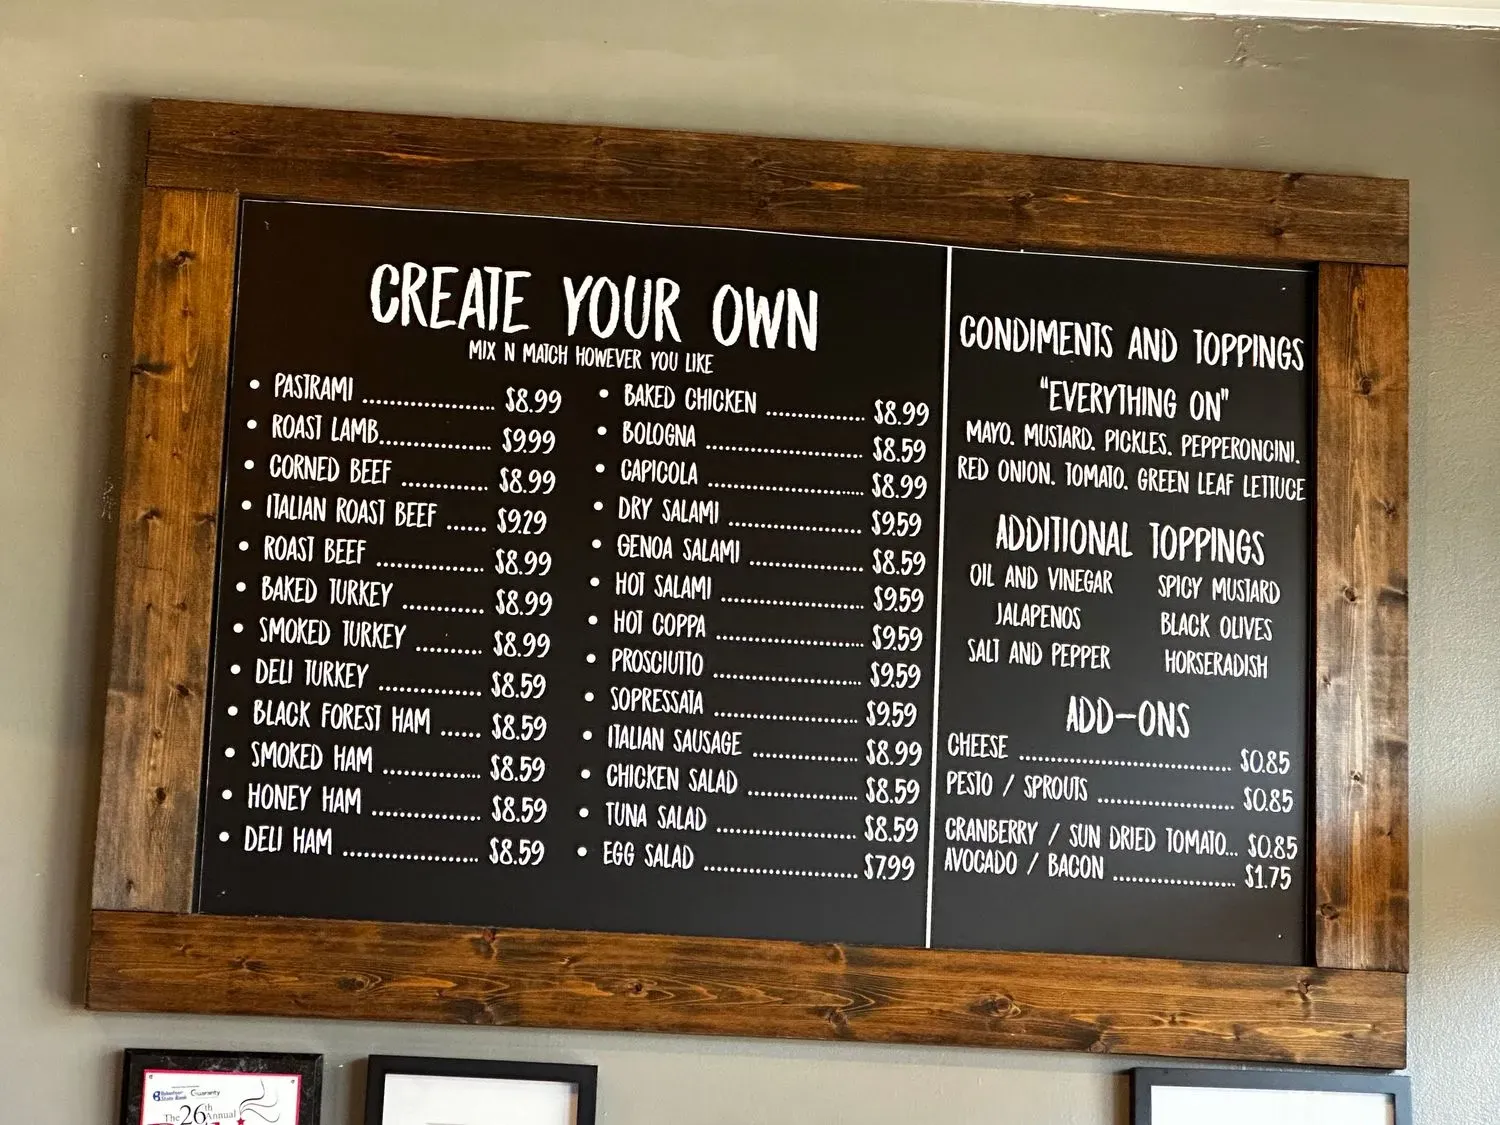 CREATE YOUR OWN
MIX N MATCH HOWEVER YOU LIKE
• PASTRAMI .................... $8.99
• ROAST LAMB................. $9.99
• CORNED BEEF ............. $8.99
• ITALIAN ROAST BEEF ...... $9.29
• ROAST BEEF ................ $8.99
• BAKED TURKEY ............ $8.99
• SMOKED TURKEY .......... $8.99
• DELI TURKEY ............... $8.59
• BLACK FOREST HAM ...... $8.59
• SMOKED HAM .............. $8.59
• HONEY HAM ............... $8.59
• DELI HAM .................... $8.59
• BAKED CHICKEN ............... $8.99
• BOLOGNA ....................... $8.59
• CAPICOLA ....................... $8.99
• DRY SALAMI .................... $9.59
• GENOA SALAMI ................. $8.59
• HOT SALAMI ..................... $9.59
• HOT COPPA ...................... $9.59
• PROSCIUTTO ..................... $9.59
• SOPRESSATA ..................... $9.59
• ITALIAN SAUSAGE ................ $8.99
• CHICKEN SALAD ................. $8.59
• TUNA SALAD .................... $8.59
• EGG SALAD ...................... $7.99
CONDIMENTS AND TOPPINGS
"EVERYTHING ON"
MAYO. MUSTARD. PICKLES. PEPPERONCINI.
RED ONION. TOMATO. GREEN LEAF LETTUCE
ADDITIONAL TOPPINGS
OIL AND VINEGAR SPICY MUSTARD
JALAPENOS BLACK OLIVES
SALT AND PEPPER HORSERADISH
ADD-ONS
CHEESE ................................ $0.85
PESTO / SPROUTS .................... $0.85
CRANBERRY / SUN DRIED TOMATO... $0.85
AVOCADO / BACON .................. $1.75
Guaranty
State Bank
The 26th Annual